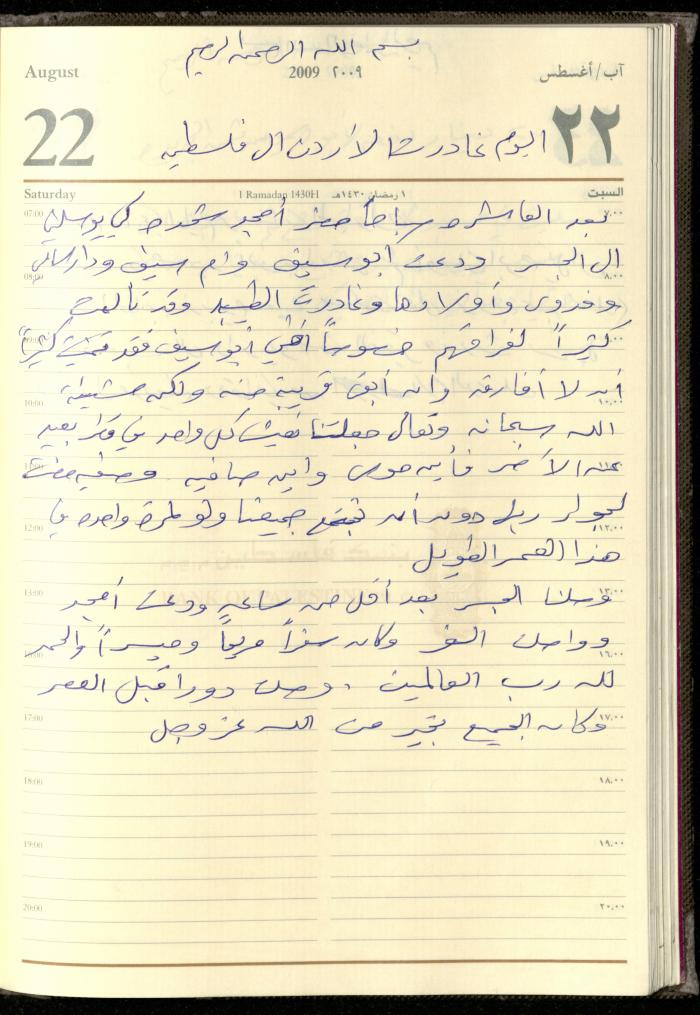 بسم الله الرحمن الرحيم
August 2009 ٢٠٠٩ آب/أغسطس
22 اليوم غادرت الأردن الى فلسطين ٢٢
Saturday 1 Ramadan 1430H ١ رمضان ١٤٣٠هـ السبت
07:00 ٧:٠٠
بعد العاشرة صباحاً حضر أمجد شحده كي يوصلني
الى الجسر ودعت أبو سيف وام سيف ودار سالم
08:00 ٨:٠٠
وفدوى وأولادها وغادرت الطيبه وقد تألمت
كثيراً لفراقهم خصوصاً اختي أبو سيف فقد تمنيت كثيراً
09:00 ٩:٠٠
أن لا أفارقه وان أبقى قريبة منه ولكن مشيئة
10:00 ١٠:٠٠
الله سبحانه وتعالى جعلتنا نعيش كل واحد في مكان بعيد
عن الآخر فأين موسى وأين صافيه وصفيه
11:00 ١١:٠٠
دون أن نجتمع جميعنا ولو لمرة واحدة في
12:00 ١٢:٠٠
هذا العمر الطويل
BANK OF PALESTINE
13:00 ١٣:٠٠
وصلنا الجسر بعد أقل من ساعه ودعت أمجد
وواصلت السفر وكان سفراً مريحاً وميسراً والحمد
١٦:٠٠
لله رب العالمين . وصلت دورا قبل العصر
17:00 ١٧:٠٠
وكان الجميع بخير من الله عز وجل
18:00 ١٨:٠٠
19:00 ١٩:٠٠
20:00 ٢٠:٠٠